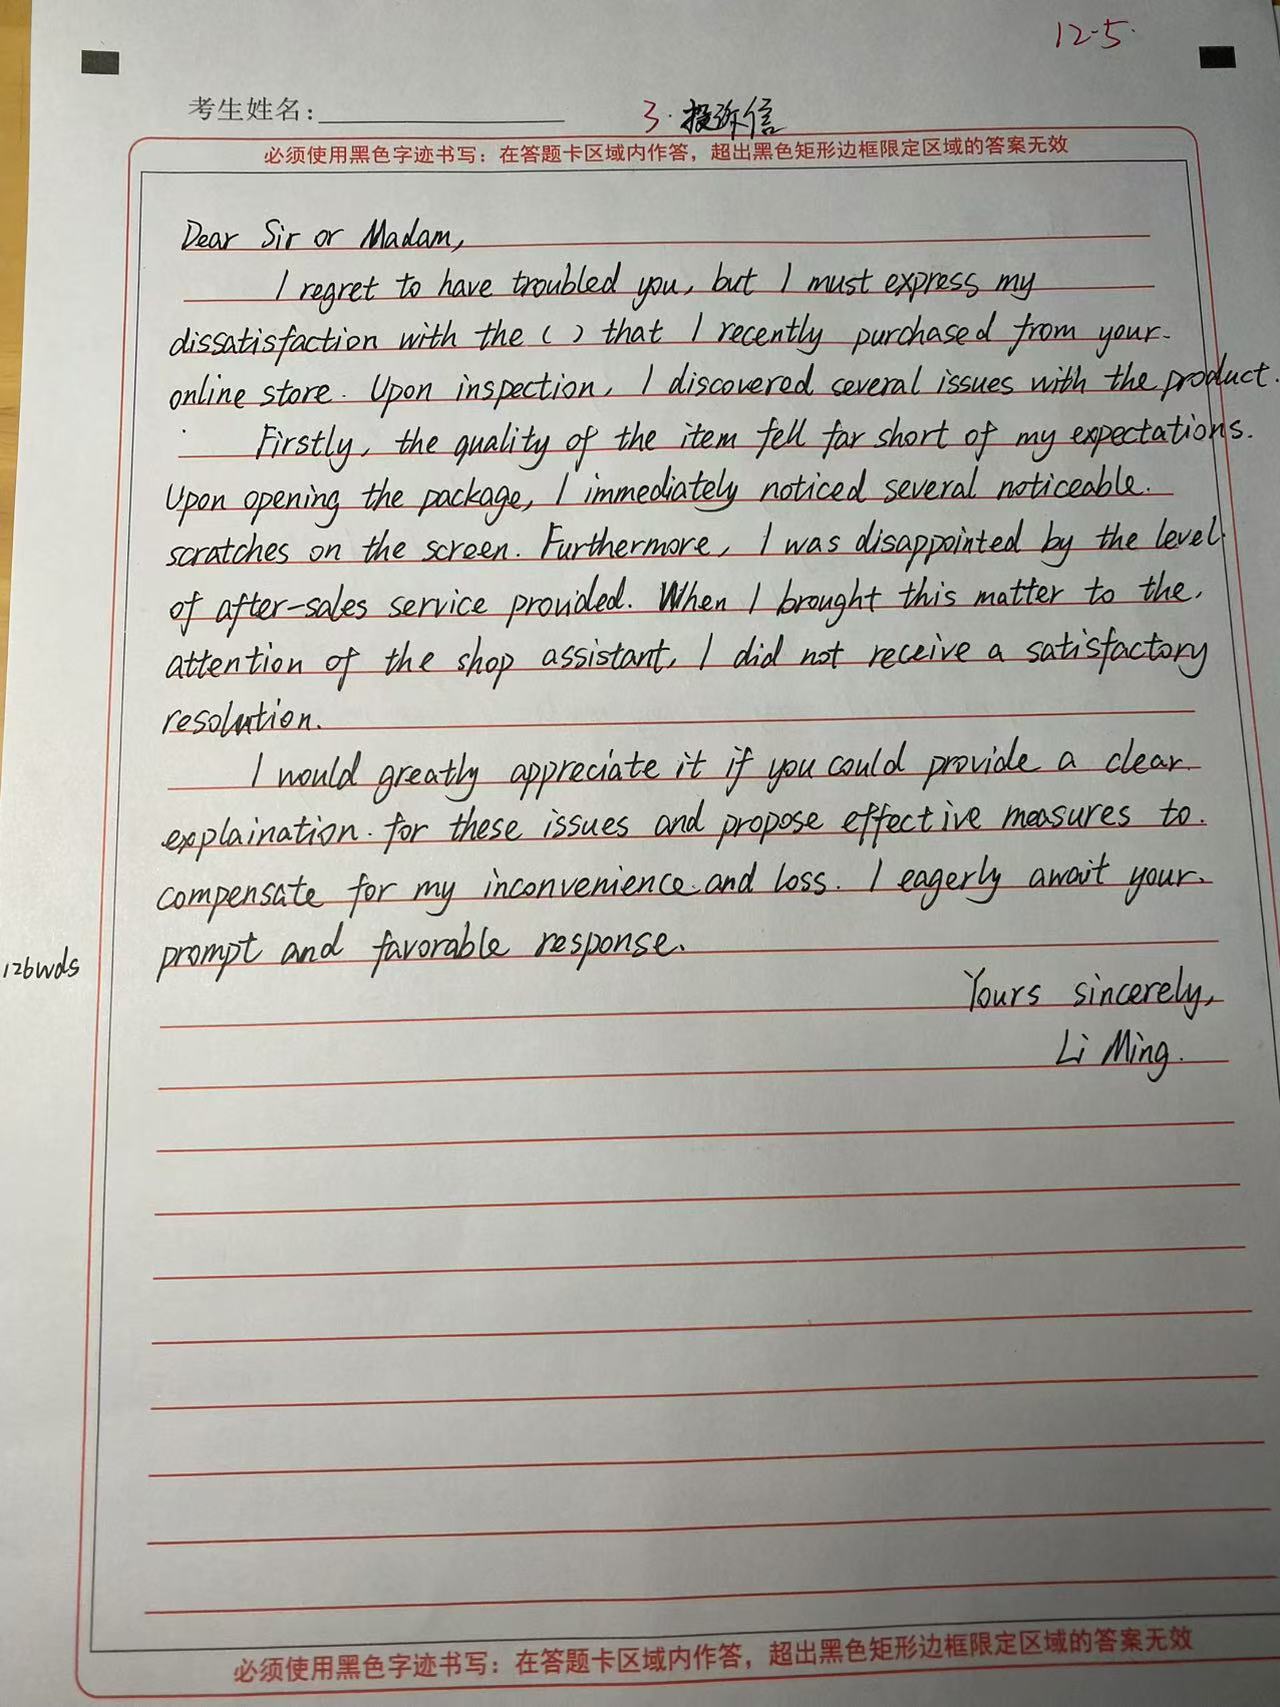 12-5.
考生姓名:
3.投诉信
必须使用黑色字迹书写：在答题卡区域内作答，超出黑色矩形边框限定区域的答案无效
Dear Sir or Madam,
I regret to have troubled you, but I must express my
dissatisfaction with the ( ) that I recently purchased from your
online store. Upon inspection, I discovered several issues with the product.
Firstly, the quality of the item fell far short of my expectations.
Upon opening the package, I immediately noticed several noticeable
scratches on the screen. Furthermore, I was disappointed by the level
of after-sales service provided. When I brought this matter to the
attention of the shop assistant, I did not receive a satisfactory
resolution.
I would greatly appreciate it if you could provide a clear
explaination for these issues and propose effective measures to
compensate for my inconvenience and loss. I eagerly await your
prompt and favorable response.
126wds
Yours sincerely,
Li Ming.
必须使用黑色字迹书写：在答题卡区域内作答，超出黑色矩形边框限定区域的答案无效